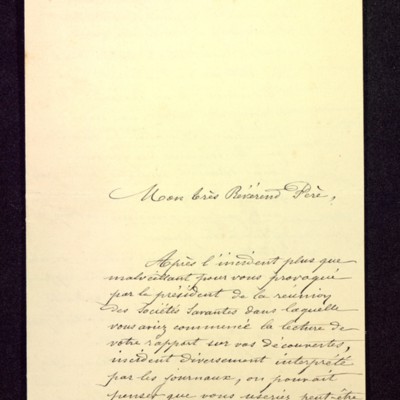 Mon très Révérend Père,
Après l'incident plus que
malveillant pour vous provoqué
par le président de la réunion
des Sociétés Savantes dans laquelle
vous aviez commencé la lecture de
votre rapport sur vos découvertes,
incident diversement interprété
par les journaux, on pouvait
penser que vous useriez peut-être